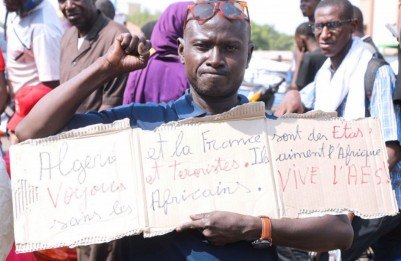 Algerie et la France sont des Etats
Voyous et terroristes. Ils aiment l'Afrique
sans les Africains. VIVE L'AES